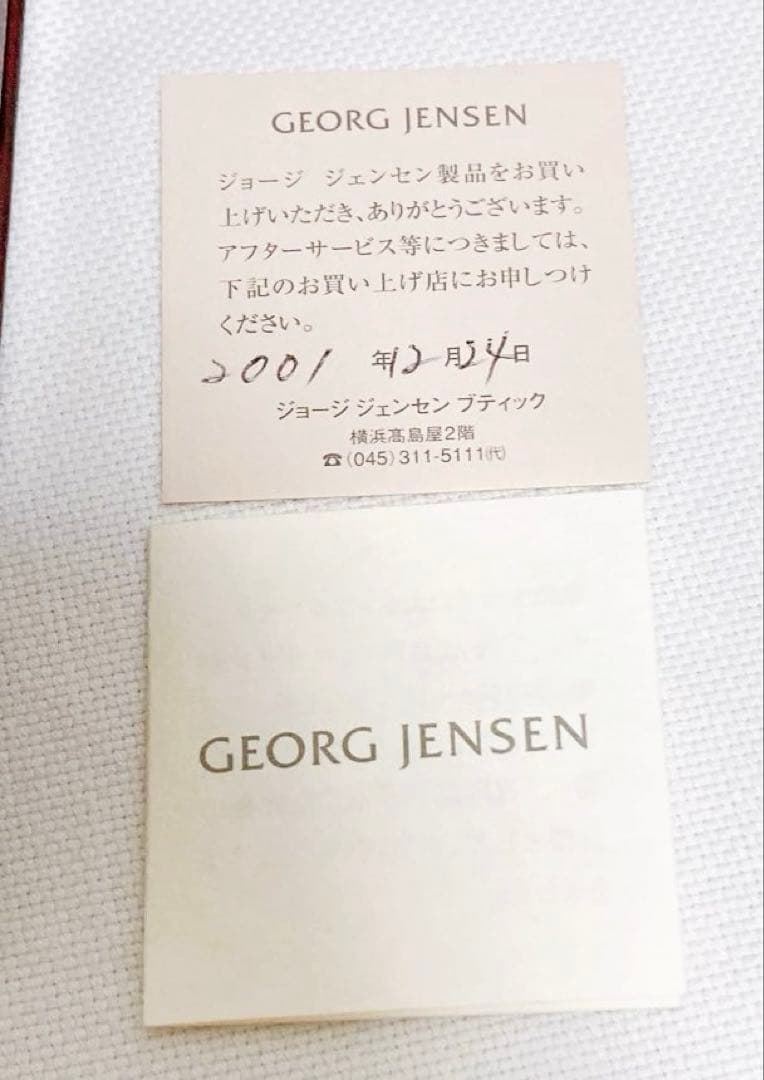 GEORG JENSEN
ジョージ ジェンセン製品をお買い
上げいただき、ありがとうございます。
アフターサービス等につきましては、
下記のお買い上げ店にお申しつけ
ください。
2001 年12月24日
ジョージ ジェンセン ブティック
横浜髙島屋2階
☎(045)311-5111㈹
GEORG JENSEN